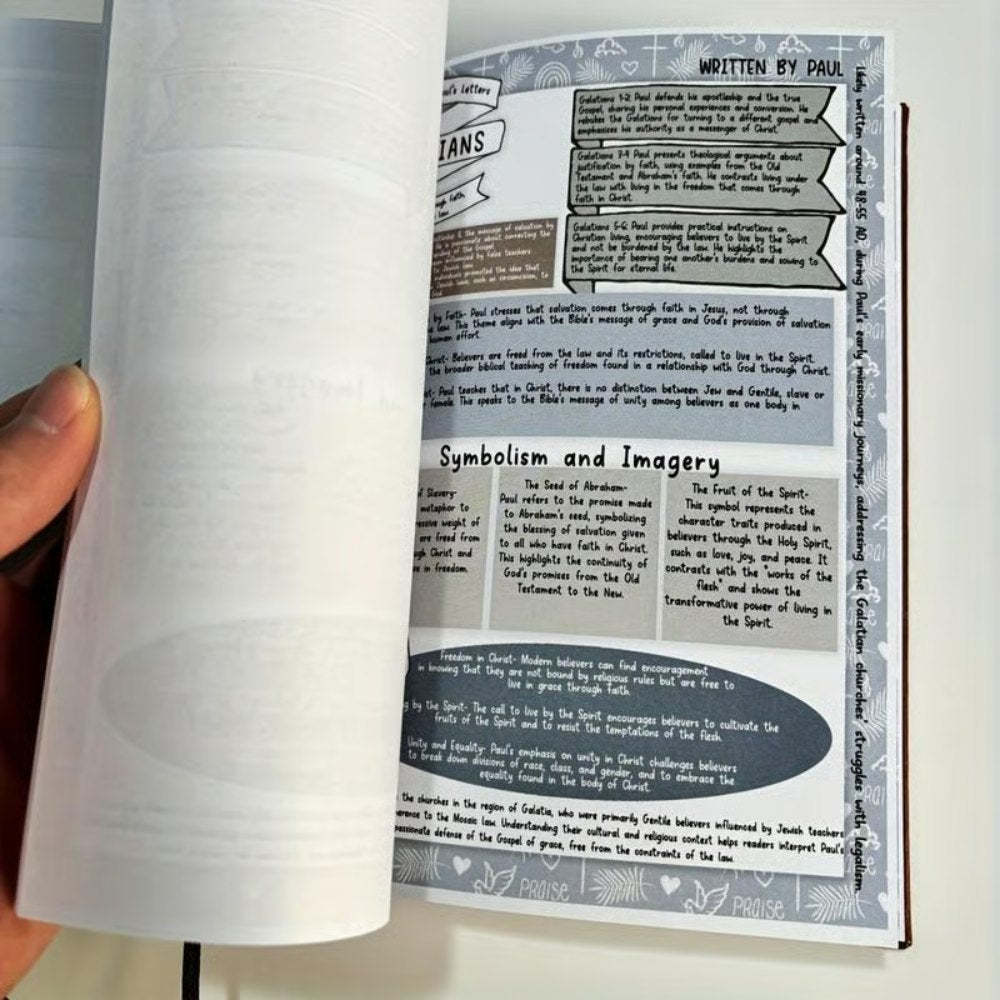 WRITTEN BY PAUL
Paul's letters
IANS
through faith,
law.
Galatians 1-2: Paul defends his apostleship and the true
Gospel, sharing his personal experiences and conversion. He
rebukes the Galatians for turning to a different gospel and
emphasizes his authority as a messenger of Christ.
Galatians 3-4: Paul presents theological arguments about
justification by faith, using examples from the Old
Testament and Abraham's faith. He contrasts living under
the law with living in the freedom that comes through
faith in Christ.
Galatians 5-6: Paul provides practical instructions on
Christian living, encouraging believers to live by the Spirit
and not be burdened by the law. He highlights the
importance of bearing one another's burdens and sowing to
the Spirit for eternal life.
the message of salvation by
He is passionate about correcting the
of the Gospel
influenced by false teachers
to Jewish law.
individuals promoted the idea that
Jewish laws, such as circumcision, to
by Faith- Paul stresses that salvation comes through faith in Jesus, not through
law. This theme aligns with the Bible's message of grace and God's provision of salvation
human effort.
Christ- Believers are freed from the law and its restrictions, called to live in the Spirit.
the broader biblical teaching of freedom found in a relationship with God through Christ.
Paul teaches that in Christ, there is no distinction between Jew and Gentile, slave or
female. This speaks to the Bible's message of unity among believers as one body in
Symbolism and Imagery
of Slavery-
metaphor to
weight of
are freed from
Christ and
in freedom.
The Seed of Abraham-
Paul refers to the promise made
to Abraham's seed, symbolizing
the blessing of salvation given
to all who have faith in Christ.
This highlights the continuity of
God's promises from the Old
Testament to the New.
The Fruit of the Spirit-
This symbol represents the
character traits produced in
believers through the Holy Spirit,
such as love, joy, and peace. It
contrasts with the "works of the
flesh" and shows the
transformative power of living in
the Spirit.
Freedom in Christ- Modern believers can find encouragement
in knowing that they are not bound by religious rules but are free to
live in grace through faith.
by the Spirit- The call to live by the Spirit encourages believers to cultivate the
fruits of the Spirit and to resist the temptations of the flesh.
Unity and Equality- Paul's emphasis on unity in Christ challenges believers
to break down divisions of race, class, and gender, and to embrace the
equality found in the body of Christ.
the churches in the region of Galatia, who were primarily Gentile believers influenced by Jewish teachers
to the Mosaic law. Understanding their cultural and religious context helps readers interpret Paul's
passionate defense of the Gospel of grace, free from the constraints of the law.
likely written around 48-55 AD, during Paul's early missionary journeys, addressing the Galatian churches' struggles with legalism.
PRAISE
PRAISE